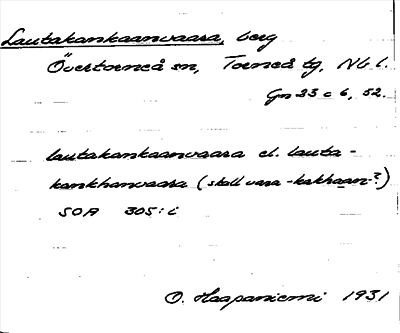 Lautakankaanvaara, berg
Övertorneå sn, Torneå tg, Nb l.
Gn 33 c 6, 52.
lautakankaanvaara el. lauta-
kankhanvaara (skall vara -kakhaan-?)
SOA 305:i
O. Haapaniemi 1931